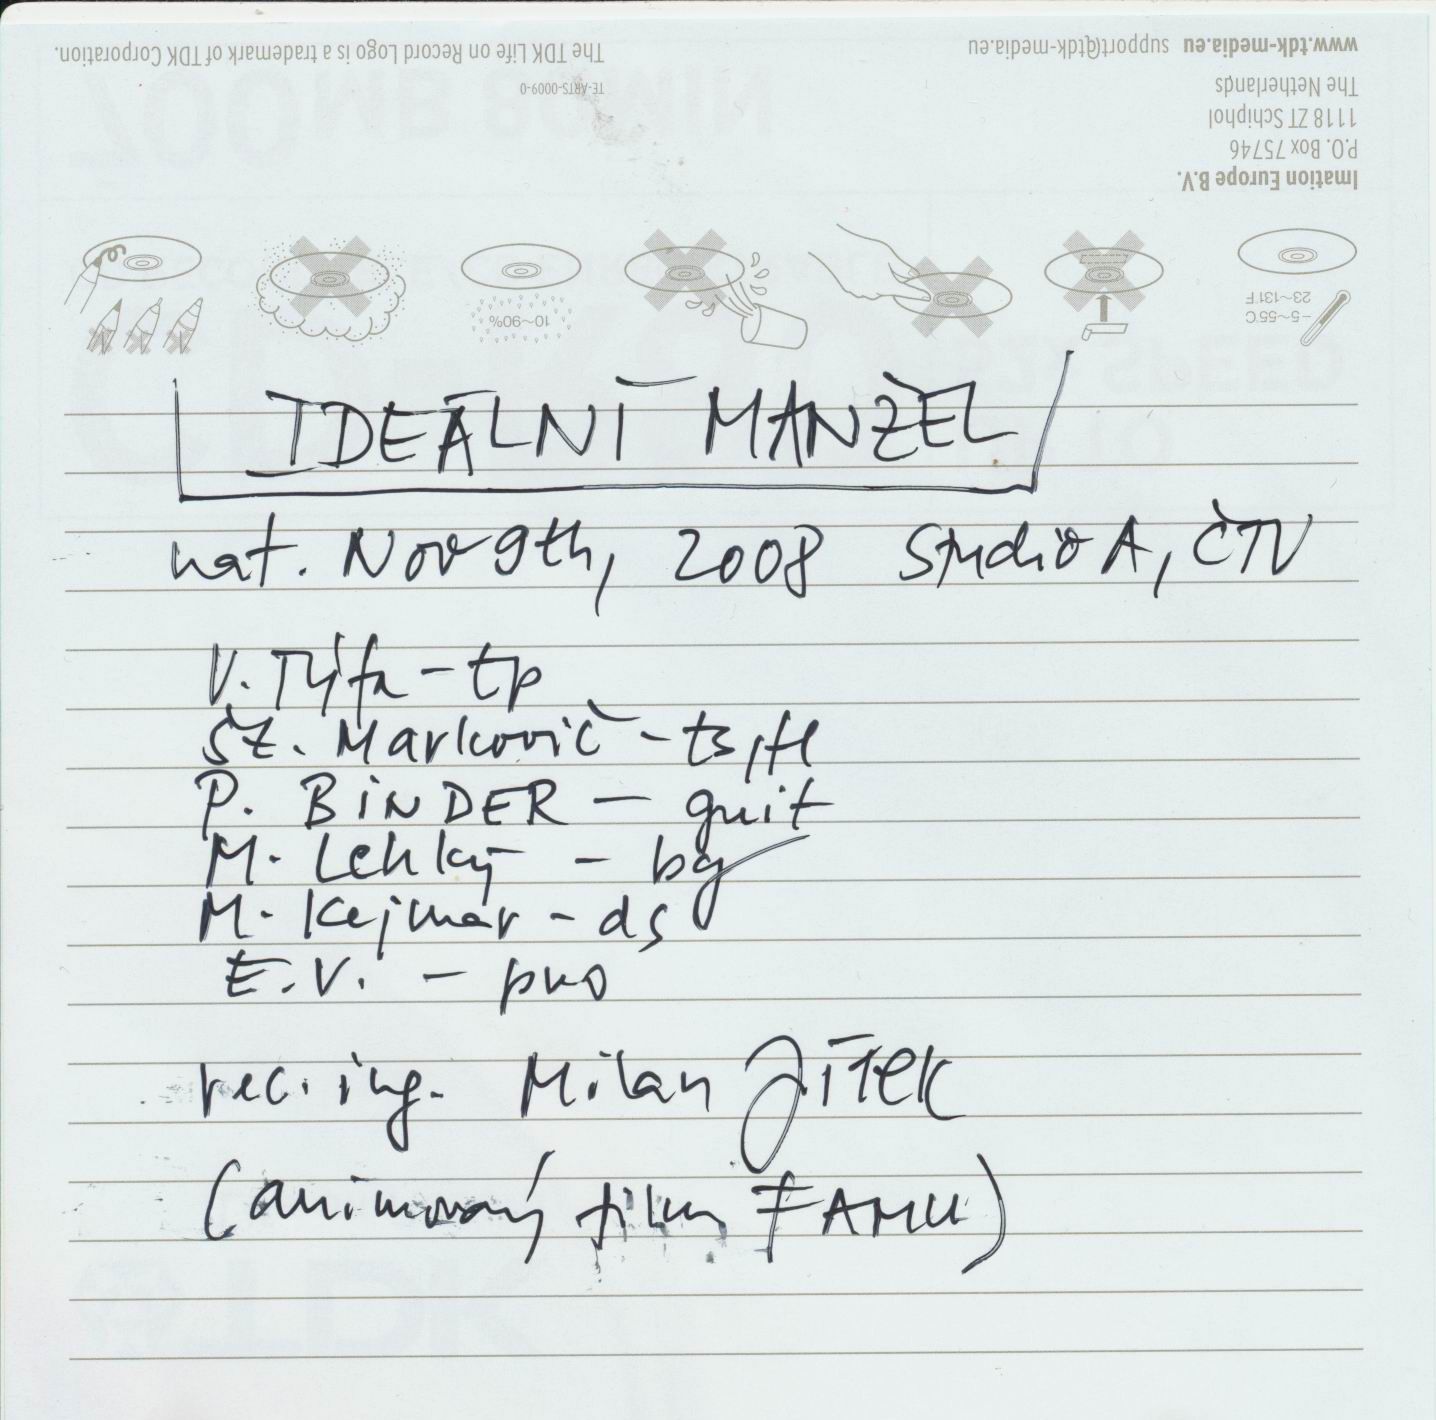 The TDK Life on Record Logo is a trademark of TDK Corporation.
TE-ARTS-0009-0
www.tdk-media.eu support@tdk-media.eu
The Netherlands
1118 ZT Schiphol
P.O. Box 75746
Imation Europe B.V.
10~90%
-5~55°C
23~131°F
IDEÁLNÍ MANŽEL
nat. Nov 9th, 2008 Studio A, ČTV
V. Týfa - tp
Št. Markovič - ts, fl
P. BINDER - guit
M. Lehký - bg
M. Kejmar - ds
E.V. - pno
rec. ing. Milan Jílek
(animovaný film FAMU)